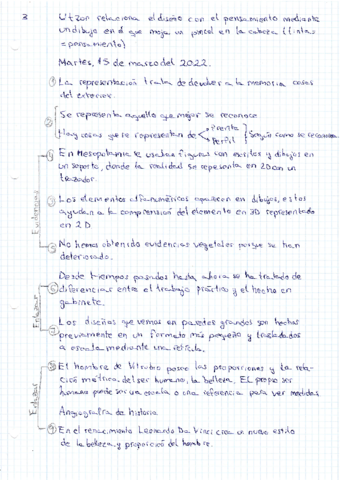 3
Utzon relaciona el diseño con el pensamiento mediante
un dibujo en el que moja un pincel en la cabeza (tintas
= pensamiento)
Martes, 15 de marzo del 2022.
① La representación trata de devolver a la memoria cosas
del exterior.
② Se representa aquello que mejor se reconoce
Hay cosas que se representan de Frente Perfil Según como se reconozca
En Mesopotamia se usaban figuras con escritos y dibujos en
un soporte, donde la realidad se representa en 2D con un
trazador
Los elementos alfanuméricos aparecen en dibujos, estos
ayudan a la comprensión del elemento en 3D representado
en 2D.
No hemos obtenido evidencias vegetales porque se han
deteriorado.
Evidencias
Desde tiempos pasados hasta ahora se ha tratado de
diferenciar entre el trabajo práctico y el hecho en
gabinete.
Los diseños que vemos en paredes grandes son hechos
previamente en un formato más pequeño y trasladados
a escala mediante una retícula.
Enlazar
El Hombre de Vitrubio posee las proporciones y la rela-
ción métrica del ser humano, la belleza. El propio ser
humano puede ser una escala o una referencia para ver medidas
de historia
⑨ En el renacimiento Leonardo Da Vinci crea un nuevo estilo
de la belleza y proporción del hombre.
Enlazar